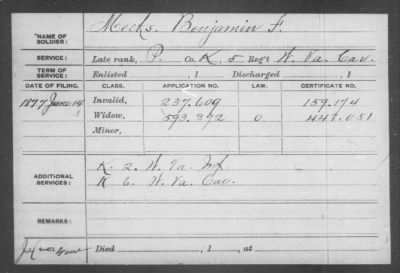 NAME OF SOLDIER: Meeks, Benjamin F.
SERVICE: Late rank, P. Co. K, 5 Reg't W. Va. Cav.
TERM OF SERVICE: Enlisted , 1 Discharged , 1
DATE OF FILING. CLASS. APPLICATION NO. LAW. CERTIFICATE NO.
1877 June 14 Invalid, 237.609 159.174
Widow, 593.372 0 443.051
Minor,
ADDITIONAL SERVICES: K. 2. W. Va. Inf
K 6. W. Va. Cav.
REMARKS:
Died , 1 , at